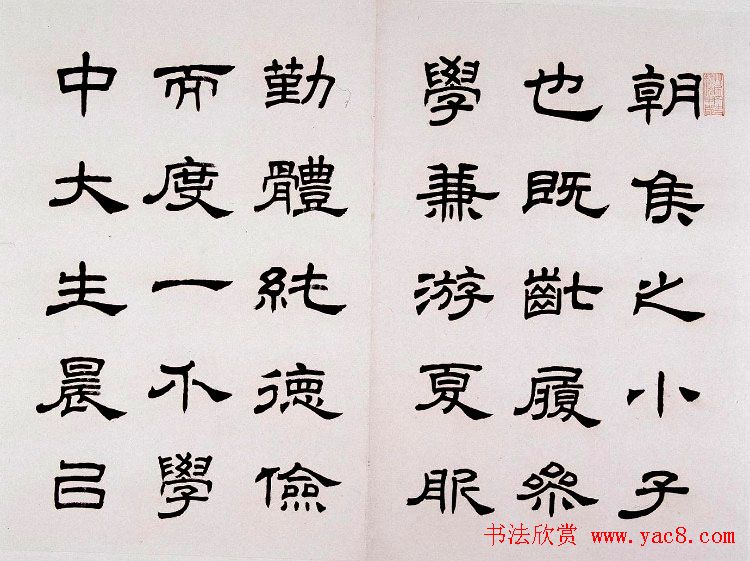 朝侯之小子
也既齔履參
學兼游夏服
勤體純德儉
而度一不學
中大生晨己
书法欣赏 www.yac8.com